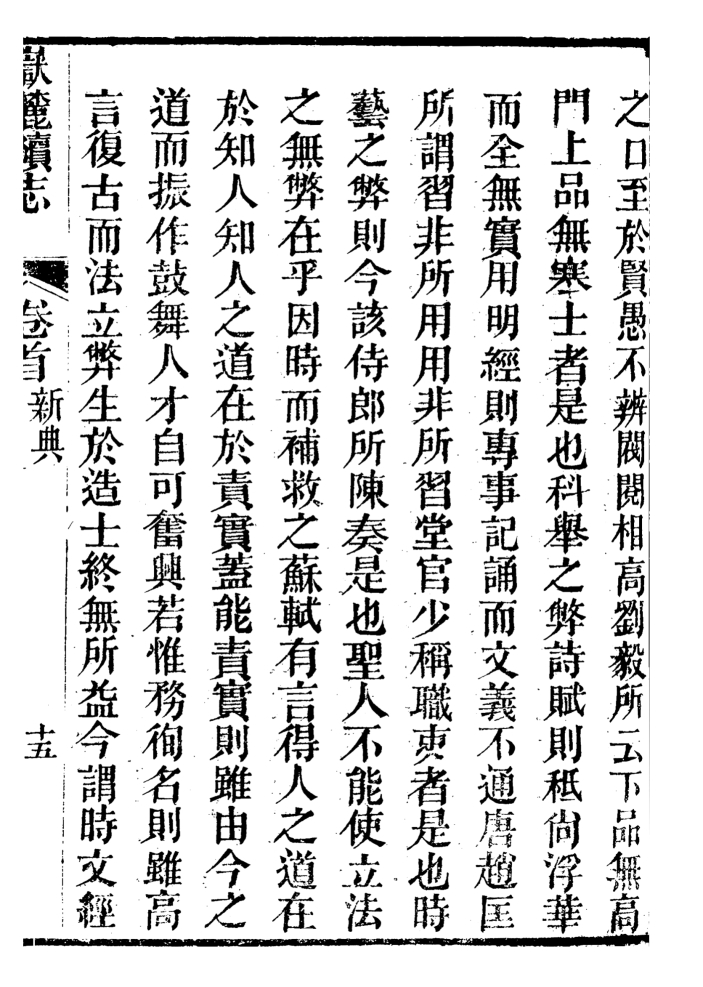 之口至於賢愚不辨閥閱相高劉毅所云下品無高
門上品無寒士者是也科舉之弊詩賦則秪尙浮華
而全無實用明經則專事記誦而文義不通唐趙匡
所謂習非所用用非所習堂官少稱職吏者是也時
藝之弊則今該侍郎所陳奏是也聖人不能使立法
之無弊在乎因時而補救之蘇軾有言得人之道在
於知人知人之道在於責實蓋能責實則雖由今之
道而振作鼓舞人才自可奮興若惟務徇名則雖高
言復古而法立弊生於造士終無所益今謂時文經
嶽麓續志 卷首 新典 十五